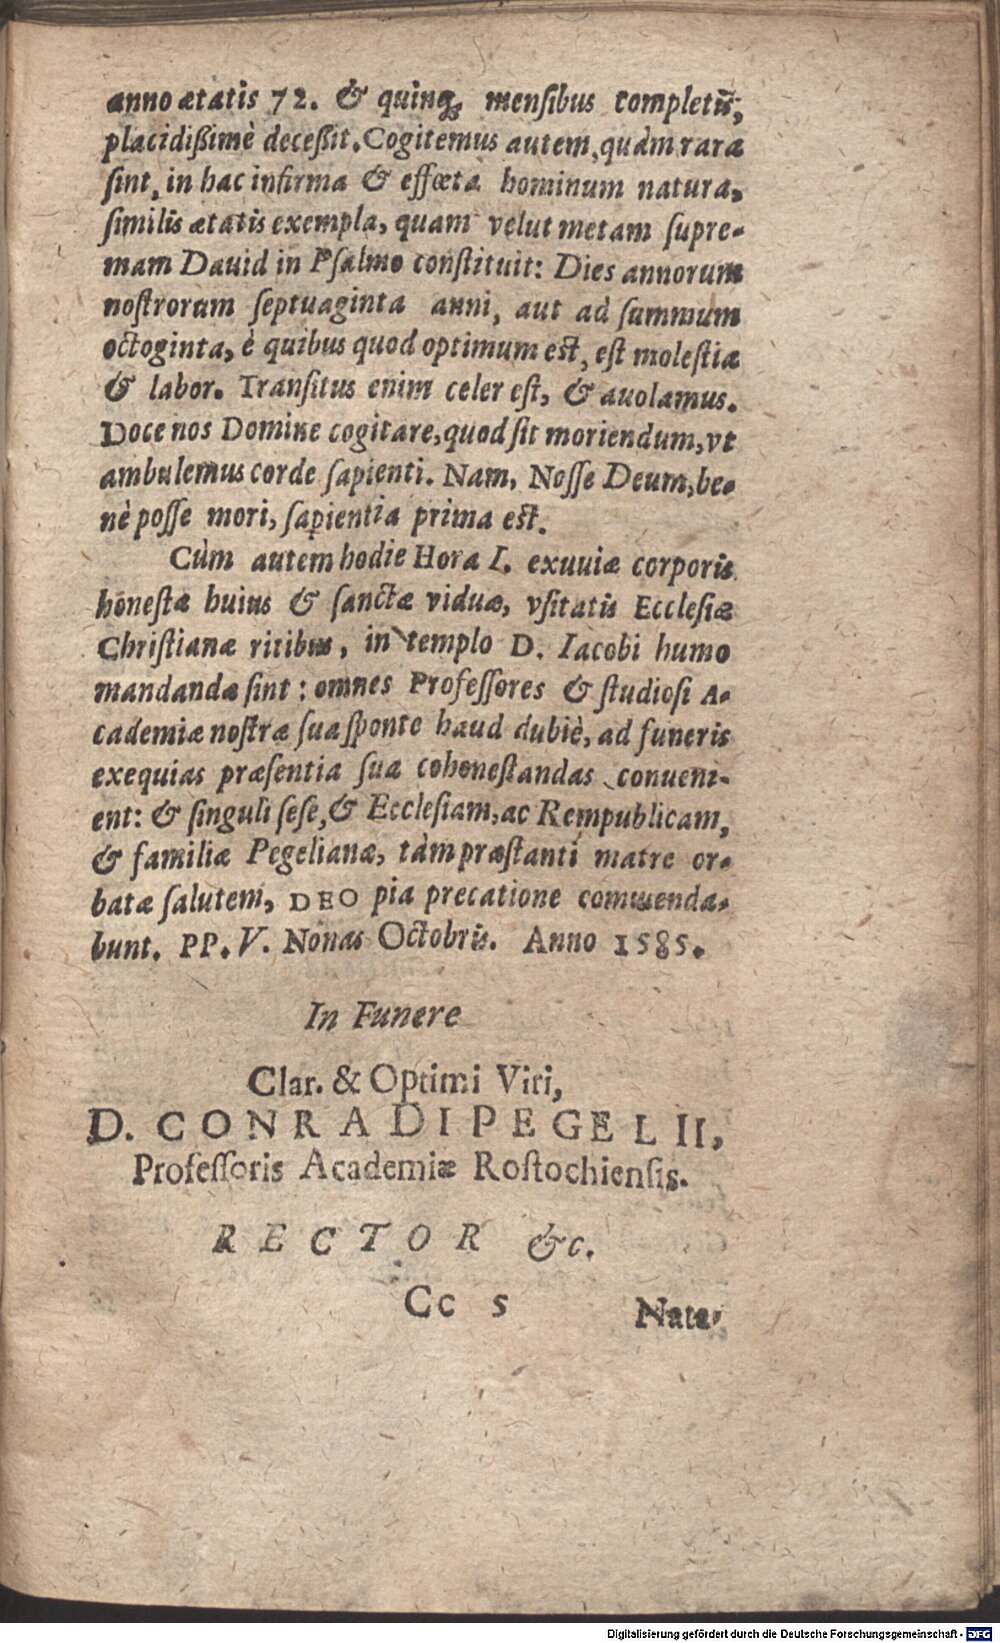 anno ætatis 72. & quinq; mensibus completis,
placidißimè deceßit. Cogitemus autem, quàm rara
sint, in hac infirma & effœta hominum natura,
similis ætatis exempla, quam velut metam supre-
mam Dauid in Psalmo constituit: Dies annorum
nostrorum septuaginta anni, aut ad summum
octoginta, è quibus quod optimum est, est molestia
& labor. Transitus enim celer est, & auolamus.
Doce nos Domine cogitare, quod sit moriendum, vt
ambulemus corde sapienti. Nam, Nosse Deum, be-
nè posse mori, sapientia prima est.
Cùm autem hodie Hora I. exuuiæ corporis
honestæ huius & sanctæ viduæ, vsitatis Ecclesiæ
Christianæ ritibus, in templo D. Iacobi humo
mandandæ sint: omnes Professores & studiosi A-
cademiæ nostræ sua sponte haud dubiè, ad funeris
exequias præsentia sua cohonestandas conueni-
ent: & singuli sese, & Ecclesiam, ac Rempublicam,
& familiæ Pegelianæ, tàm præstanti matre or-
batæ salutem, DEO pia precatione commenda-
bunt. PP. V. Nonas Octobris. Anno 1585.
In Funere
Clar. & Optimi Viri,
D. CONRADI PEGELII,
Professoris Academiæ Rostochiensis.
RECTOR &c.
Cc 5
Nata-
Digitalisierung gefördert durch die Deutsche Forschungsgemeinschaft - DFG